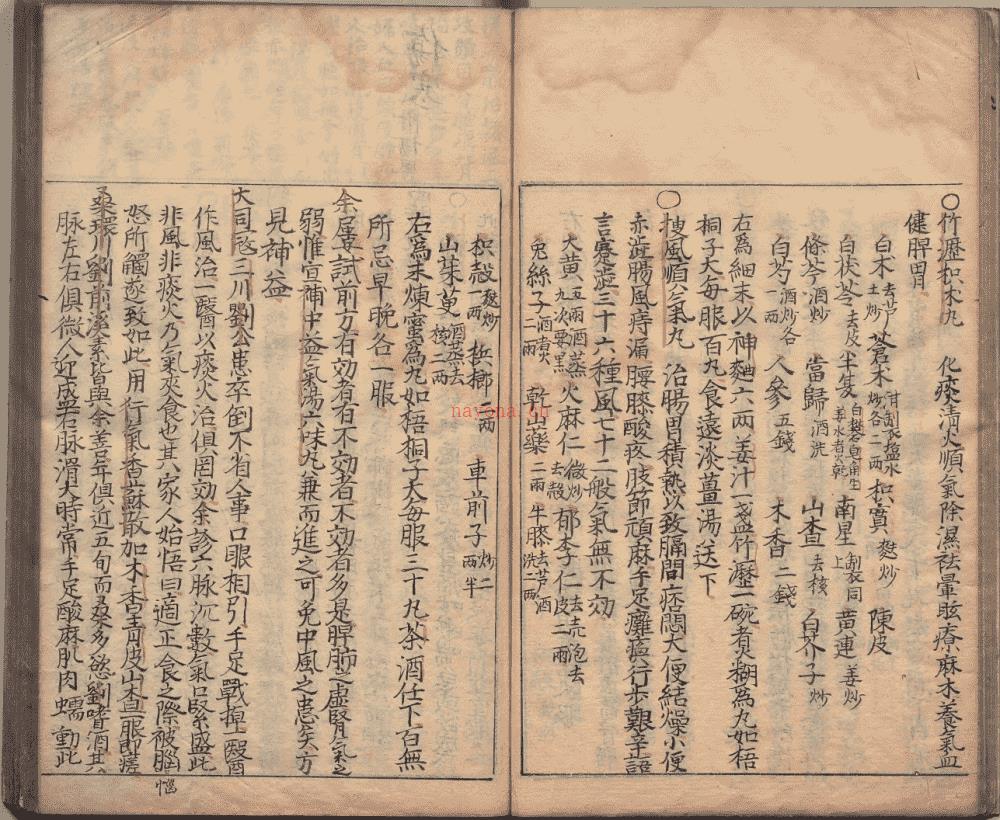 ○竹瀝枳朮丸 化痰清火順氣除濕祛暈眩療麻木養氣血
健脾胃
白术去芦土炒 蒼术泔制衣塩水炒各二兩 枳實麩炒 陳皮
白茯苓去皮 半夏白礬皂角生姜水煮乾 南星製同上 黄連姜炒
條芩酒炒 當歸酒洗 山查去核 白芥子炒
白芍酒炒各一兩 人參五錢 木香二錢
右為細末以神麯六兩姜汁一盞竹瀝一碗煮糊為丸如梧
桐子大每服百丸食遠淡薑湯送下
○搜風順氣丸 治腸胃積熱以致膈間痞悶大便結燥小便
赤澁腸風痔漏腰膝酸疼肢節頑麻手足癱瘓行步艱辛語
言蹇澁三十六種風七十二般氣無不効
大黄五兩酒蒸九次要黑 火麻仁微炒去殻 郁李仁去壳泡去皮二兩
兎絲子酒煮二兩 乾山藥二兩 牛膝去芦酒洗二兩
枳殻麩炒一兩 梹榔一兩 車前子炒二兩半
山茱萸酒蒸去核二兩
右為末煉蜜為丸如梧桐子大每服三十丸茶酒任下百無
所忌早晚各一服
余屢試前方有効者有不効者不効者多是脾肺之虛腎氣之
弱惟宜補中益氣湯六味丸兼而進之可免中風之患矣方
見神益
大司㓂三川劉公患卒倒不省人事口眼相引手足戰掉一醫
作風治一醫以痰火治俱罔効余診六脉沉數氣口緊盛此
非風非痰火乃氣夾食也其家人始悟曰適正食之際被腦
怒所觸遂致如此用行氣香蘇散加木香青皮山查一服即瘥
桑環川劉前溪素皆與余善年俱近五旬而桑多慾劉嗜酒其六
脉左右俱微人迎盛右脉滑大時常手足酸麻肌肉蠕動此
惱
nayona.cn